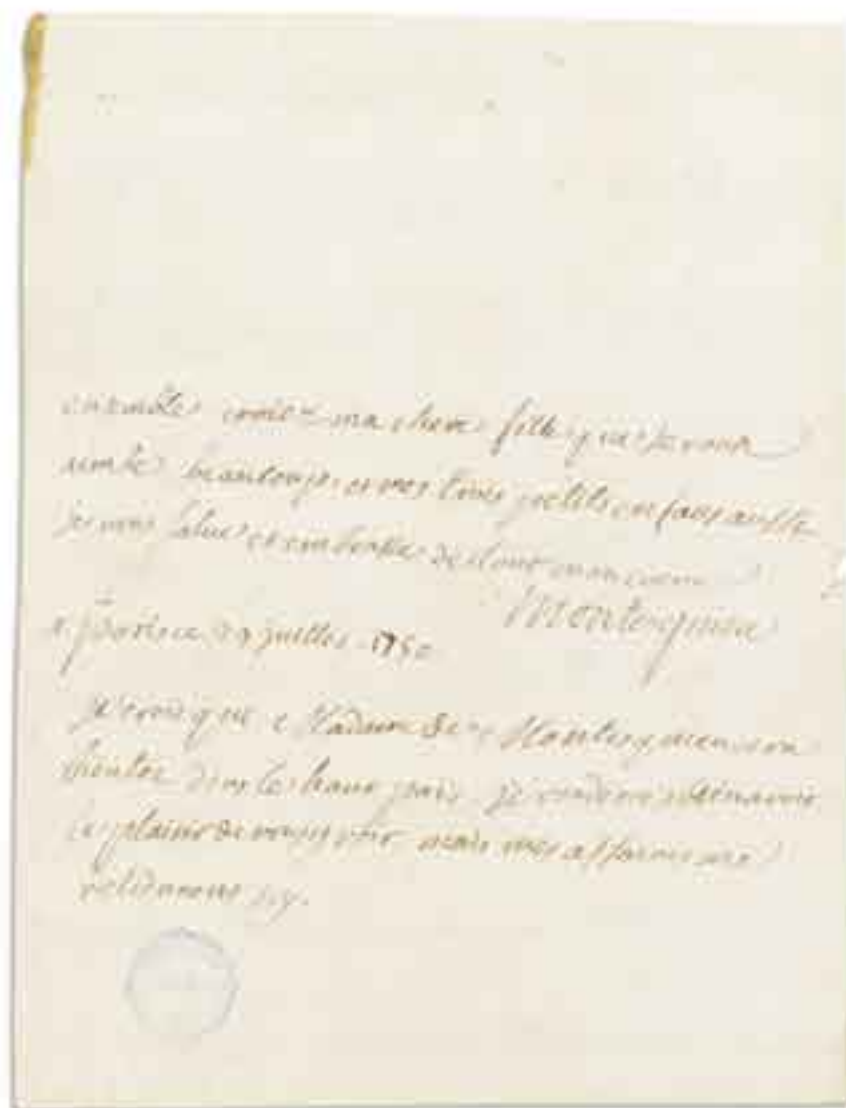 ma chere fille que je vous
aime beaucoup et mes trois petits enfans aussi
je vous salue et embrasse de tout mon cœur
Montesquieu
a juillet 1750
je crois que Madame de Montesquieu
bientot dans le haut pais je voudrois
le plaisir de vous voir mais mes affaires me
retiennent icy.